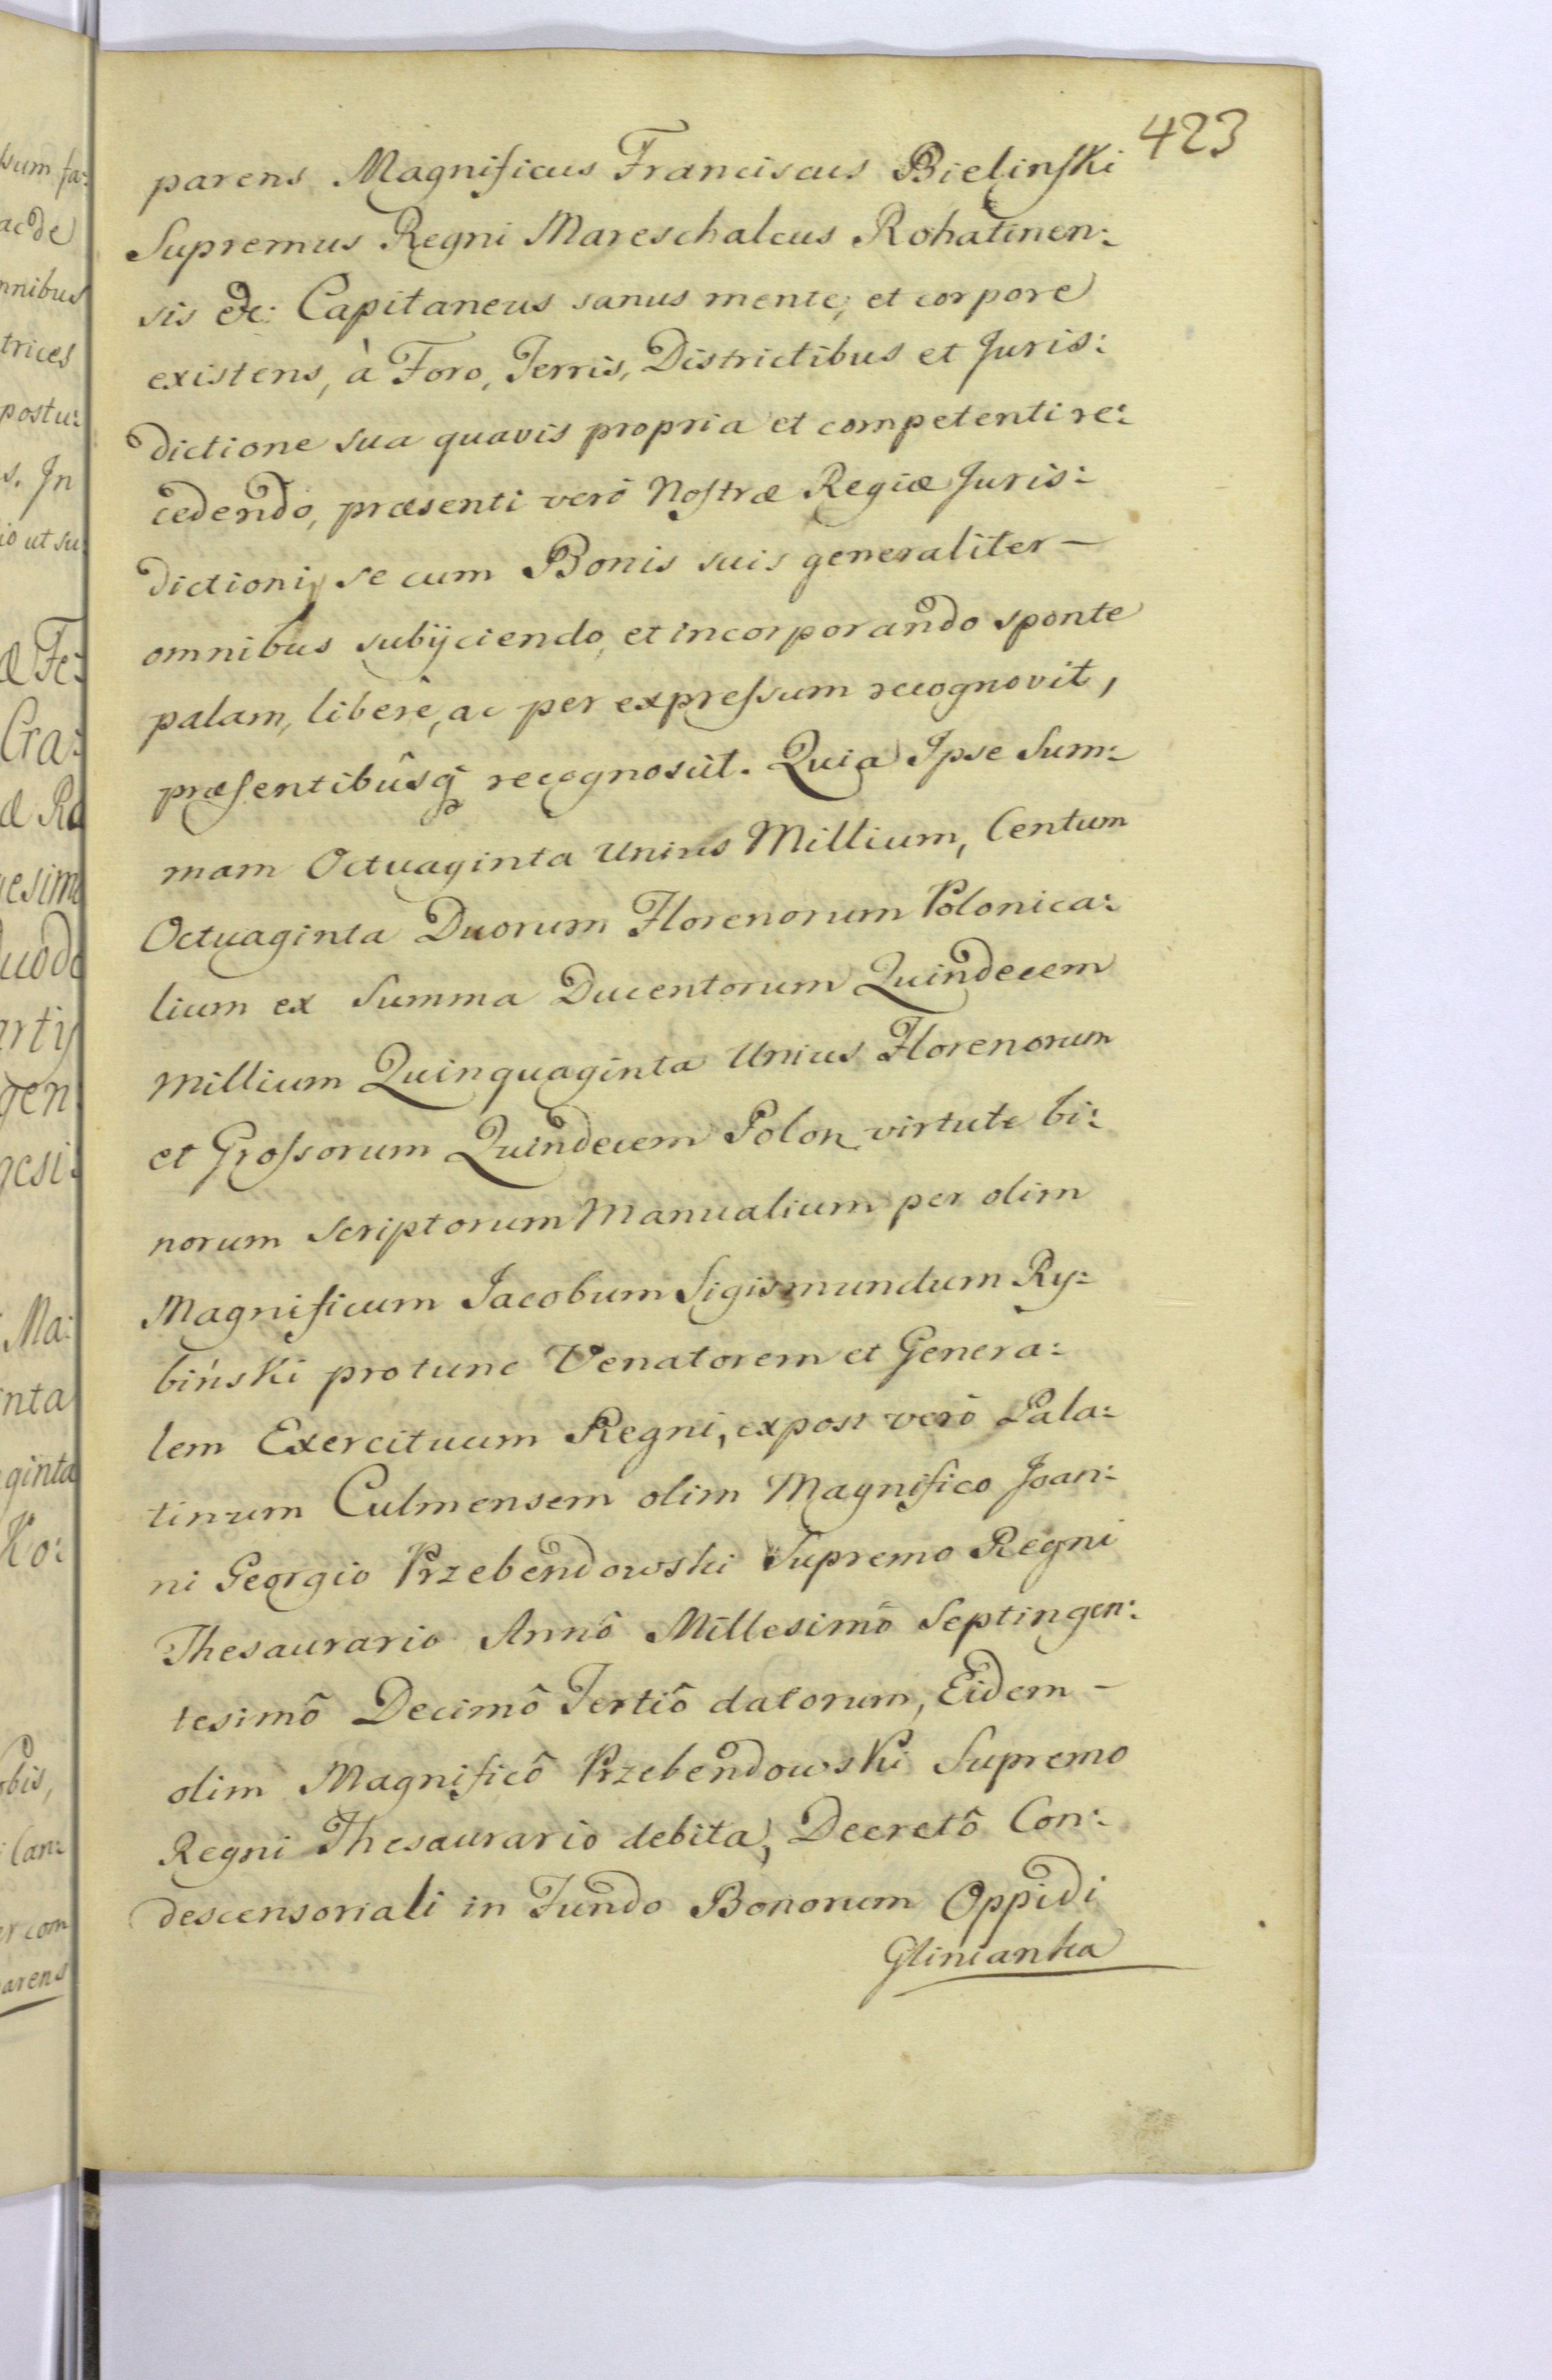 423
parens Magnificus Franciscus Bielinſki
Supremus Regni Mareschalcus Rohatinen:
sis &c: Capitaneus sanus mente, et corpore
existens, à Foro, Terris, Districtibus et Juris:
dictione sua quavis propria et competenti re:
cedendo, præsenti verô Noſtræ Regiæ Juris:
dictioni, se cum Bonis suis generaliter —
omnibus subijciendo, et incorporando sponte
palam, liberè, ac per expreſsum recognovit,
præſentibûsq; recognoscit. Quia Ipse Sum:
mam Octuaginta Unius Millium, Centum
Octuaginta Duorum Florenorum Polonica:
lium ex Summa Ducentorum Quindecem
Millium Quinquaginta Unius Florenorum
et Groſsorum Quindecem Polon virtute bi:
norum Scriptorum Manualium per olim
Magnificum Jacobum Sigismundum Ry:
biński protunc Venatorem et Genera:
lem Exercituum Regni, expost verô Pala:
tinum Culmensem olim Magnifico Joan:
ni Georgio Przebendowski Supremo Regni
Thesaurario Annô Millesimô Septingen:
tesimô Decimô Tertiô datorum, Eidem —
olim Magnificô Przebendowski Supremo
Regni Thesaurario debita, Decretô Con:
descensoriali in Fundo Bonorum Oppidi
Glinianka
sum fa:
ac de
mnibus
trices
postu:
s. Jn
io ut su:
æ Fe:
Cra:
esimo
gen:
gesi:
Ma:
inta
ginta
Ko:
obis,
Can:
er com
arens